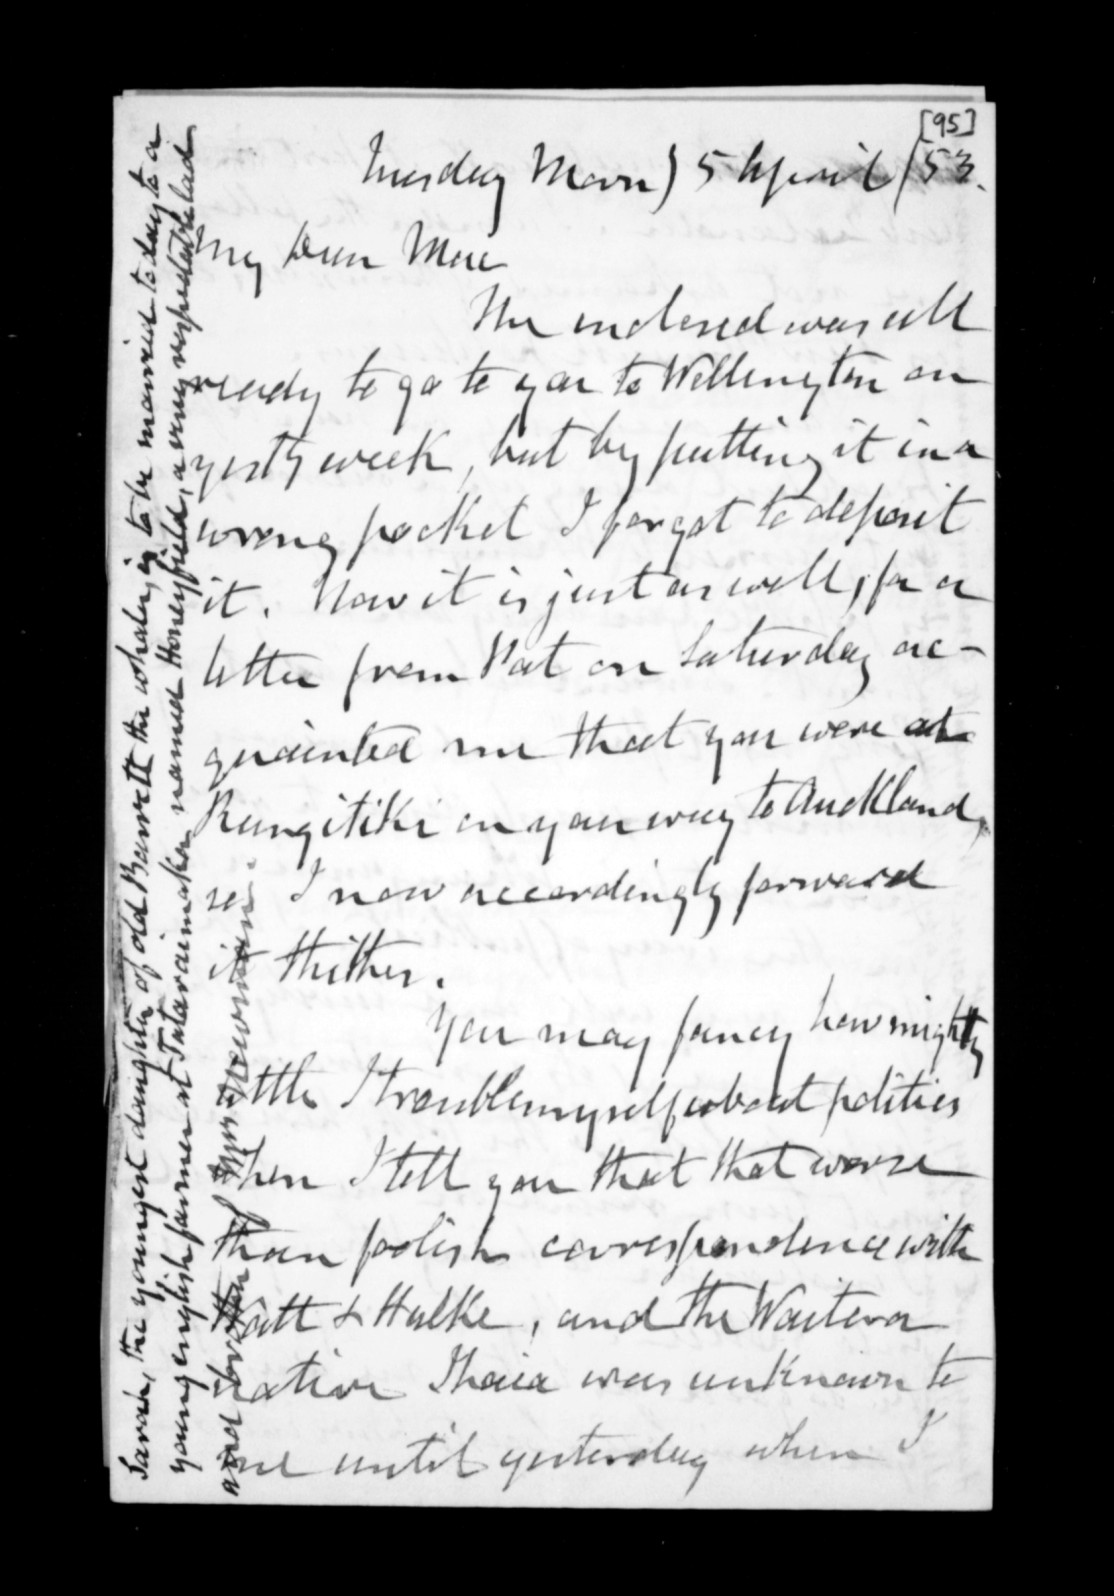 [95]
Tuesday Morn) 5 April /53.
My Dear Mac
The enclosed was all
ready to go to you to Wellington on
yesty week, but by putting it in a
wrong pocket I forgot to deposit
it. Now it is just as well, for a
letter from Pat on Saturday ac-
quainted me that you were at
Rangitiki on your way to Auckland,
so I now accordingly forward
it thither.
You may fancy how mighty
little I trouble myself about politics
when I tell you that that worse
than foolish correspondence with
Watt & Halke, and the Waitera
native Ihaia was unknown to
me until yesterday when I
Sarah, the youngest daughter of old Barrett the whaler, is to be married to day to a
young english farmer at Tataraimaka named Honeyfield, a very respectable lad
and brother of Mrs Newman.